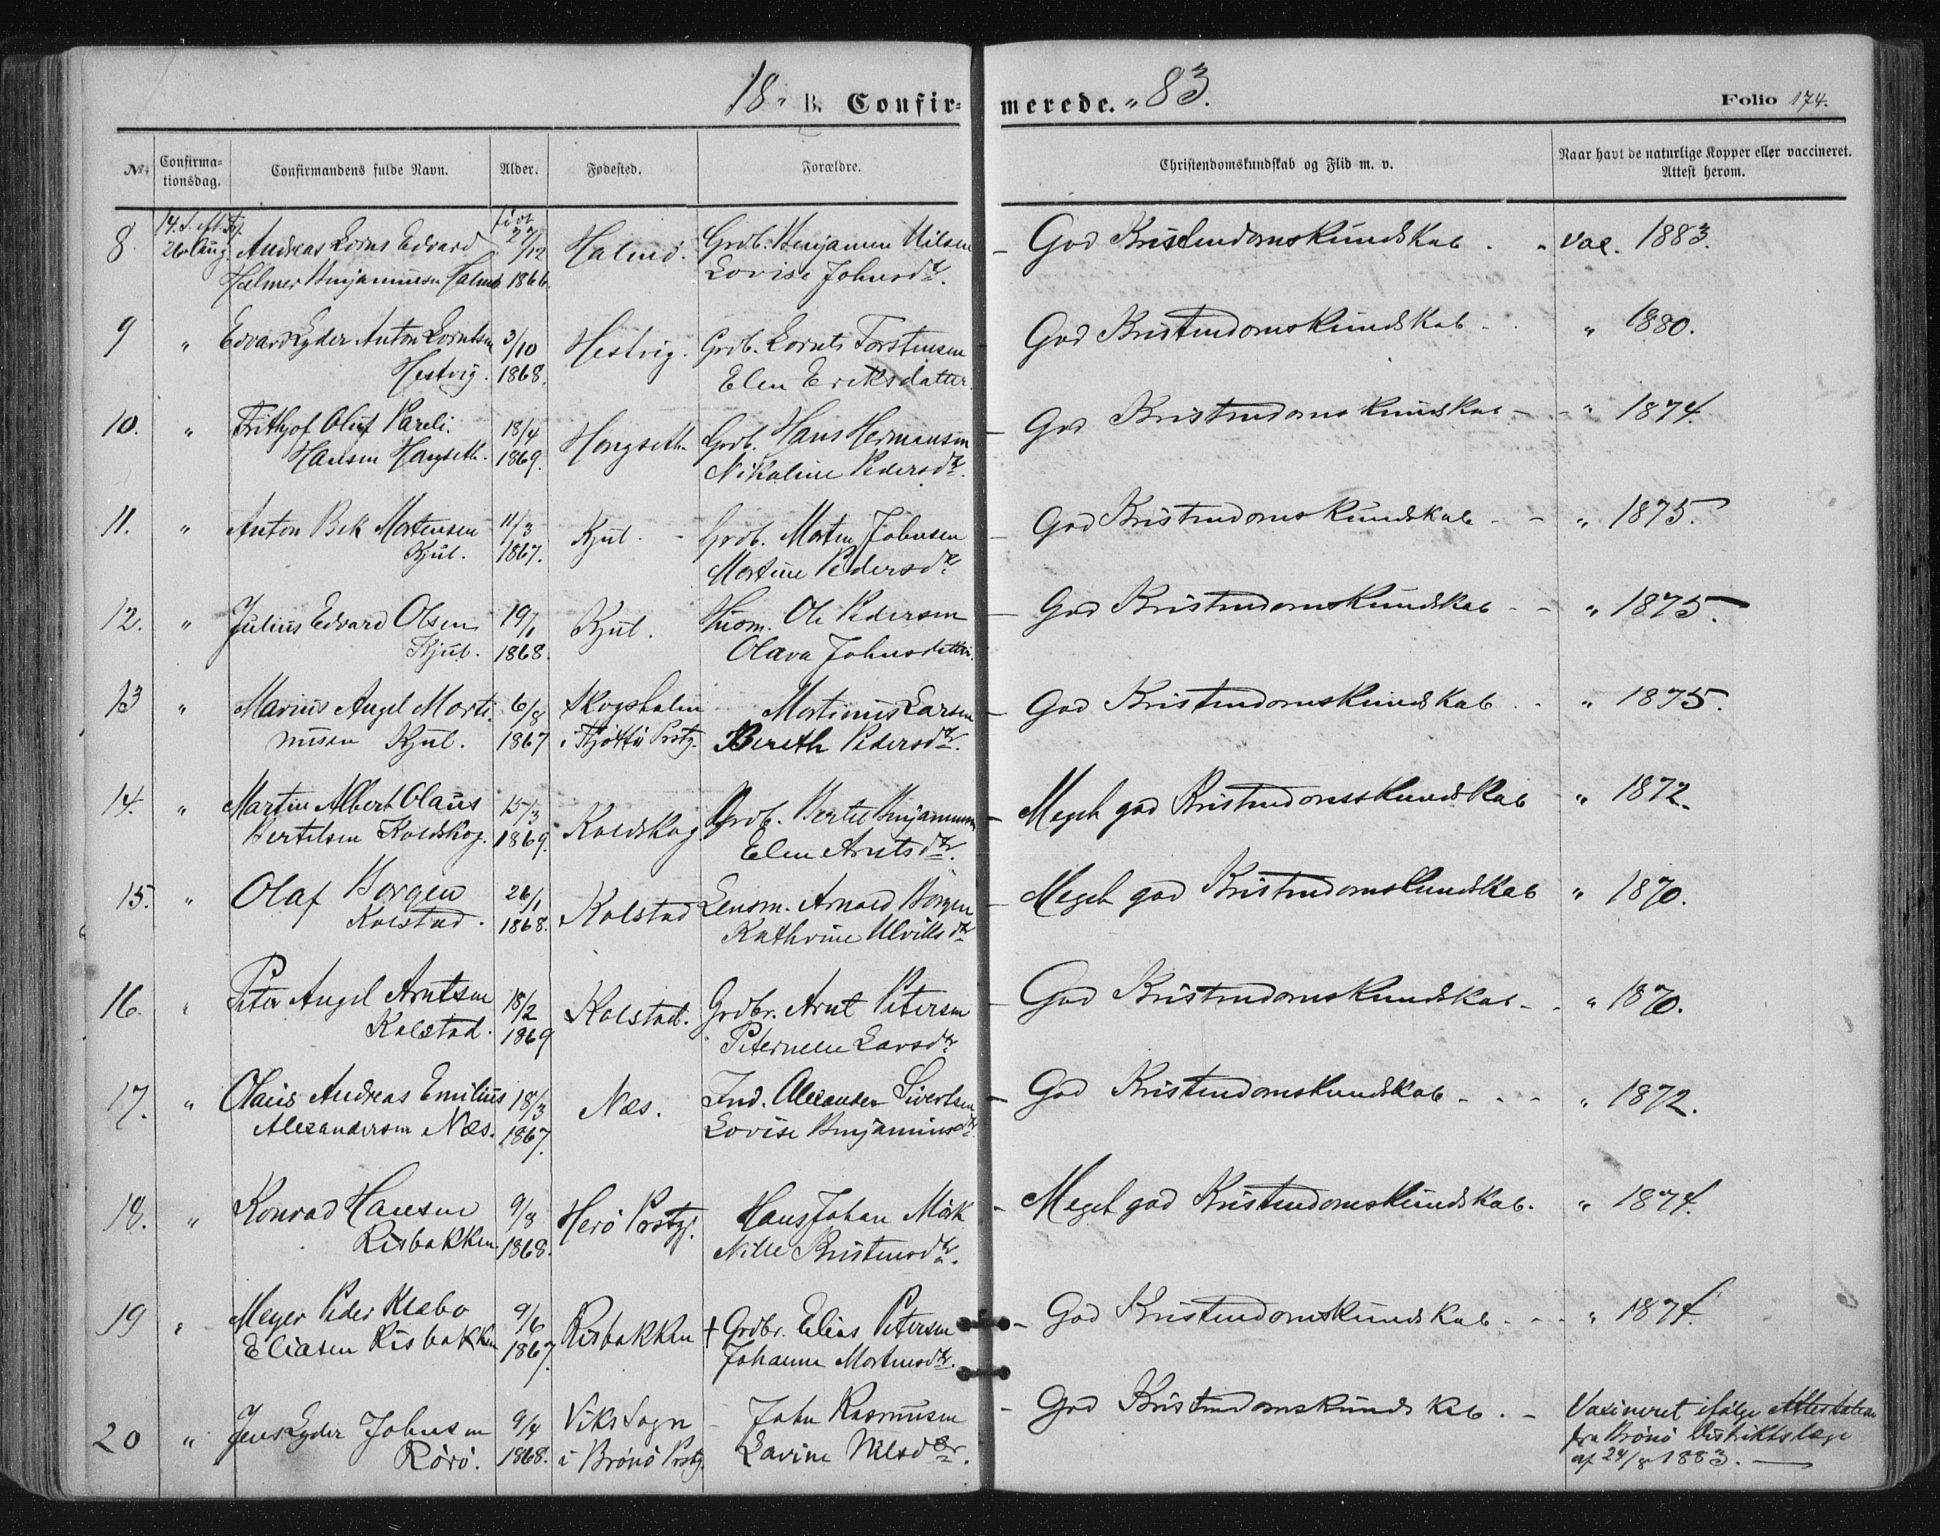 18 " B. Confirmerede. " 83.
Folio 174.
No. Confirmationsdag. Confirmandens fulde Navn. Alder. Fødested. Forældre. Christendomskundskab og Flid m. v. Naar havt de naturlige Kopper eller vaccineret. Attest herom.
14. S. eft. Tr. født
8. 26 Aug. Andreas Lorns Edvard 27/12 Halmö. Grdb. Benjamin Nilsen God Kristendomskundskab. " Vac. 1883.
Helmer Benjaminsen Halmö 1866. Lovise Johnsdtr.
9 " Edvard Lyder Anton Lorntsen 3/10 Hestvig. Grdb. Lornts Torstensen God Kristendomskundskab " 1880.
Hestvig. 1868. Elen Eriksdatter.
10. " Frithjof Oluf Pareli. 18/4 Hongseth Grdb. Hans Hermansen God Kristendomskundskab " 1874.
Hansen Hongseth. 1869. Nikoline Pedersdtr.
11. " Anton Bek Mortensen 11/3 Kjul. Grdb. Morten Johnsen God Kristendomskundskab " 1875.
Kjul. 1867. Mortine Pedersdtr.
12. " Julius Edvard Olsen 19/1 Kjul. Huom. Ole Pedersen God Kristendomskundskab " 1875.
Kjul. 1868. Olava Johnsdatter.
13 " Marius Angel Marti- 6/8 Skogsholm Martinus Larsen God Kristendomskundskab. " 1875.
nusen Kjul. 1867 i Tjöttö Prstg. Bereth Pedersdtr.
14. " Martin Albert Olaus 15/3 Koldskog Grdb. Bertel Benjaminsen Meget god Kristendomsskundskab " 1872.
Bertelsen Koldskog. 1869. Elen Arntsdtr.
15. " Olaf Borgen 26/1 Kolstad Lensm. Arnold Borgen Meget god Kristendomskundskab " 1870.
Kolstad. 1868. Kathrine Ulriksdtr
16. " Peter Angel Arntsen 18/2 Kolstad. Grdbr. Arnt Petersen God Kristendomskundskab " 1870.
Kolstad. 1869 Peternelle Larsdtr
17. " Olaus Andreas Emilius 18/3 Næs. Ind. Alexander Sivertsen God Kristendomskundskab " 1872.
Alexandersen Næs. 1867. Lovise Benjaminsdtr
18. " Konrad Hansen 9/8 Herö Prstgj. Hans Johan Mörk Meget god Kristendomskundskab. " 1874.
Risbakken. 1868. Nille Kristensdtr.
19 " Meyer Peder Klæbo 9/6 Risbakken + Grdbr. Elias Petersen God Kristendomskundskab. " 1874.
Eliasen Risbakken 1867. Johanna Mortensdtr.
20 " Jens Lyder Johnsen 9/4 Viks Sogn John Rasmusen God Kristendomskundskab. Vaxineret ifølge Attestation
Rörö. 1868. i Brönö Prstg. Lavine Nilsdtr. fra Brönö Distriktslæge
af 24/8 1883.